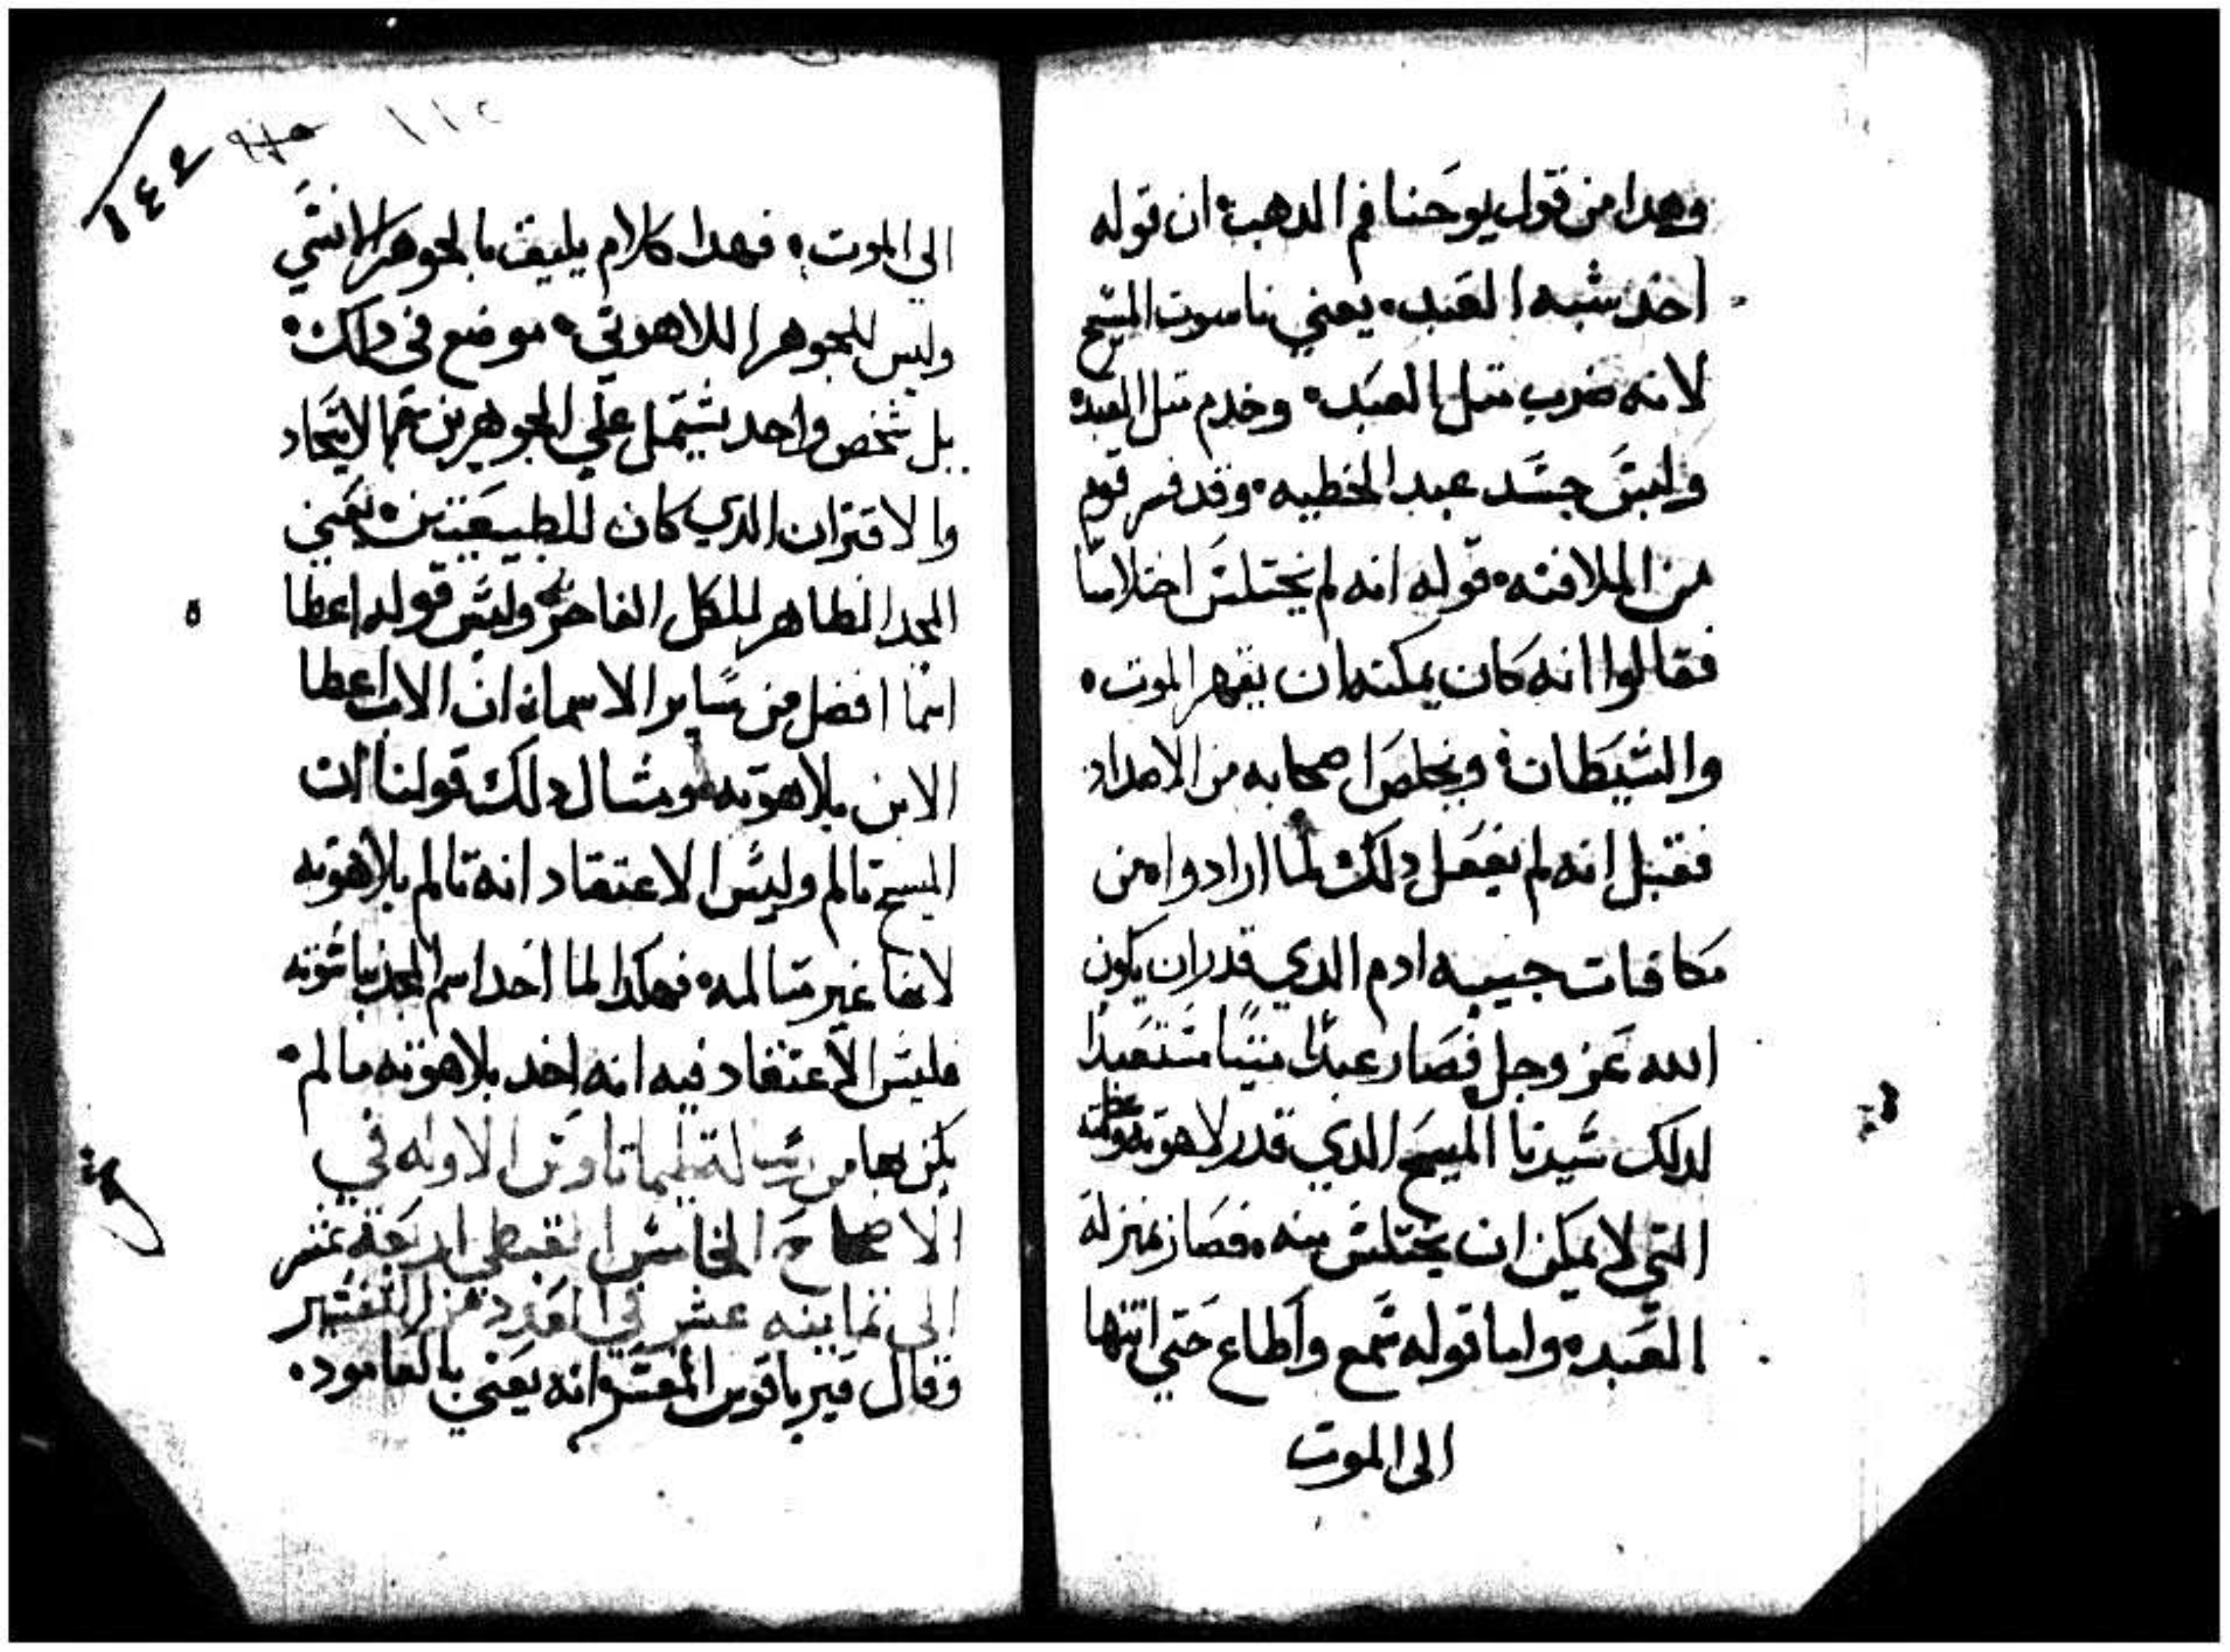 وهدا من قول يوحنا فم الدهب ان قوله
اخد شبه العبد يعني ناسوت المسيح
لانه ضرب مثل العبد وخدم مثل العبد
وليس جسد عبد الخطيه وقد فسر قوم
من الملافنه قوله انه لم يختلس اختلاسا
فقالوا انه كان يمكنه ان يقهر الموت
والشيطان ويخلص اصحابه من
فقبل انه لم يفعل دلك لما ارادوا من
مكافات ادم الدي قدر ان يكون
الله عز وجل فصار عبدا ميتا متعبدا
لدلك سيدنا المسيح الدي قدر لاهوته
التي لا يمكن ان يختلس منه فصار بمنزلة
العبد واما قوله سمع واطاع حتي انتها
الى الموت
١٤٤
١١٥
الى الموت فهدا كلام يليق بالجوهر الانسي
وليس للجوهر اللاهوتي موضع في دلك
بل شخص واحد يشتمل علي الجوهرين الاتحاد
والاقتران الدي كان للطبيعتين يعني
المجد الظاهر للكل الفاخر وليس قوله اعطا
اسما افضل من ساير الاسما ان الاب اعطا
الابن بلاهوته ومثال دلك قولنا ان
المسيح تالم وليس الاعتقاد انه تالم بلاهوته
لانها غير متالمه فهكدا لما اخد اسم المجد بناسوته
فليس الاعتقاد فيه انه اخد بلاهوته ما لم
يكن بها من رسالة تيماتاوس الاوله في
الاصحاح الخامس القبطي اربعة عشر
الى تمانيه عشر في العدد من التفسير
وقال قيرياقوس المفسر انه يعني بالعامود